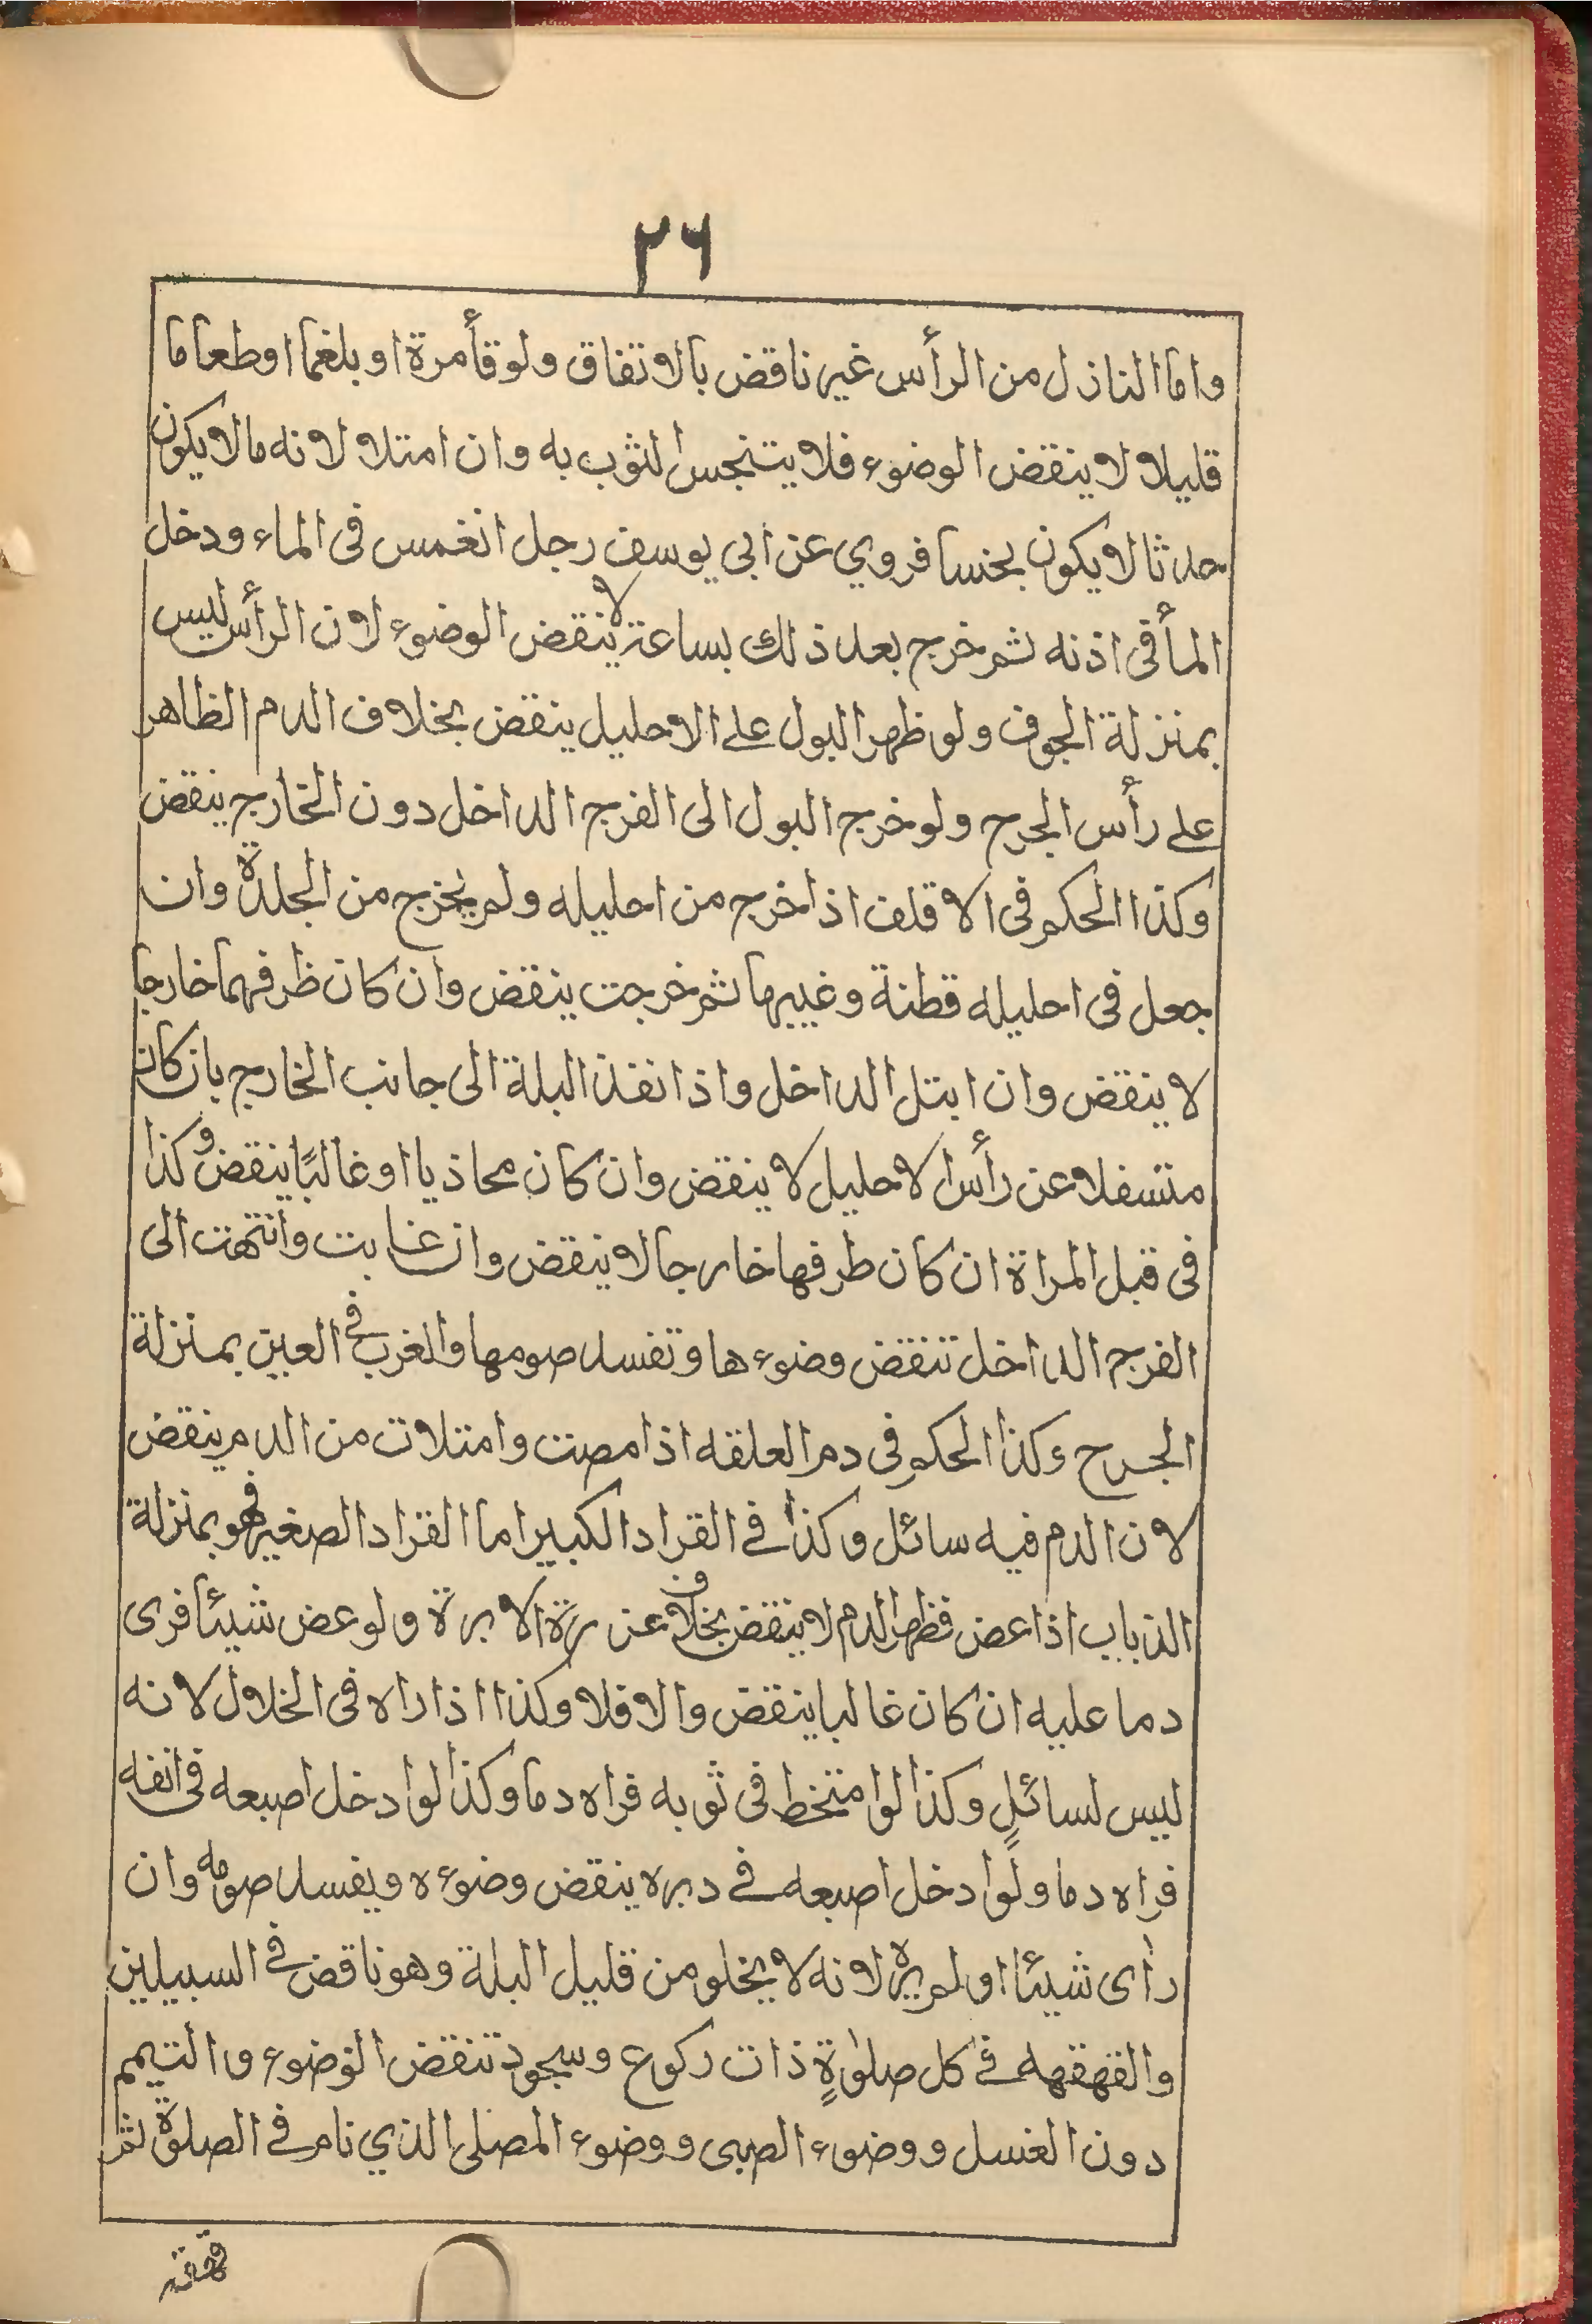 ٢٦
واما النازل من الرأس غير ناقض بالاتفاق ولو قأ مرة او بلغما اوطعاما
قليلا لا ينقض الوضوء فلا يتنجس الثوب به وان امتلا لانه مالا يكون
حدثا لا يكون نجسا فروي عن ابي يوسف رجل انغمس فى الماء ودخل
المأفى اذنه ثم خرج بعد ذلك بساعة لا ينقض الوضوء لان الرأس ليس
بمنزلة الجوف ولو ظهر البول على الاحليل ينقض بخلاف الدم الظاهر
على رأس الجرح ولو خرج البول الى الفرج الداخل دون الخارج ينقض
وكذا الحكم فى الاقلف اذا خرج من احليله ولم يخرج من الجلدة وان
جعل فى احليله قطنة وغيبها ثم خرجت ينقض وان كان ظرفهما خارجا
لا ينقض وان ابتل الداخل واذا نفذ البلة الى جانب الخارج بان كان
متسفلا عن رأس الاحليل لا ينقض وان كان محاذيا او غالبًا ينقض وكذا
فى قبل المراة ان كان طرفها خارجا لا ينقض وان غابت وانتهت الى
الفرج الداخل تنقض وضوءها وتفسد صومها والغرب في العين بمنزلة
الجرح وكذا الحكم فى دم العلقه اذا مصت وامتلات من الدم ينقض
لان الدم فيه سائل وكذا في القراد الكبير اما القراد الصغير فهو بمنزلة
الذباب اذا عض فظهر الدم لا ينقض بخلاف غرزة الابرة ولو عض شيئا فرى
دما عليه ان كان غالبا ينقض والا فلا وكذا اذا راه فى الخلال لانه
ليس لسائلٍ وكذا لو امتخط فى ثوبه فراه دما وكذا لو ادخل اصبعه فى انفه
فراه دما ولو ادخل اصبعه في دبره ينقض وضوءه ويفسد صومه وان
رأى شيئا او لم يره لانه لا يخلو من قليل البلة وهو ناقض في السبيلين
والقهقهه في كل صلوٰةٍ ذات ركوع وسجود تنقض الوضوء والتيمم
دون الغسل ووضوء الصبى ووضوء المصلى الذي نام في الصلوة ثم